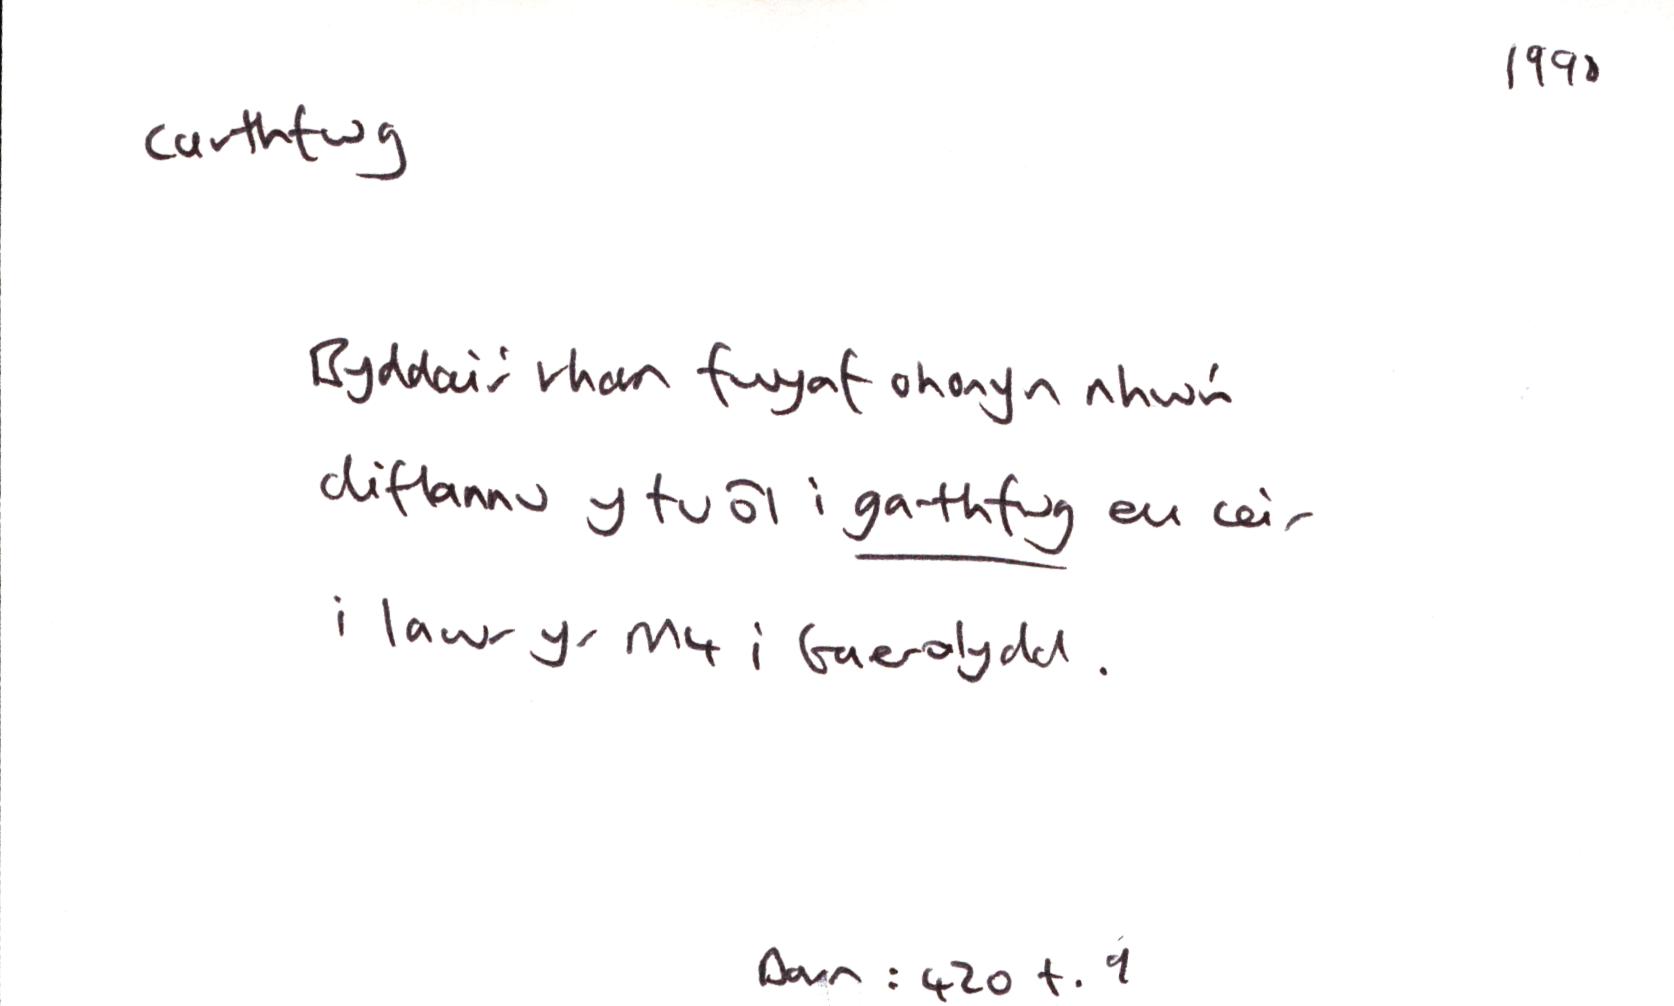 1990
carthfwg
Byddai'r rhan fwyaf ohonyn nhw'n
diflannu y tu ôl i garthfwg eu ceir
i lawr yr M4 i Gaerdydd.
Barn : 420 t. 9